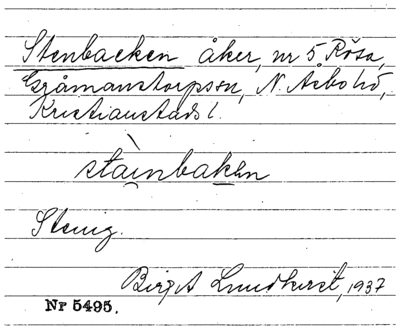 Stenbacken åker, nr 5 Röså,
Gråmanstorps sn, N. Åsbo hd,
Kristianstads l.
stàinbaken
Stenig.
Birgit Lundkvist, 1937
Nr 5495.